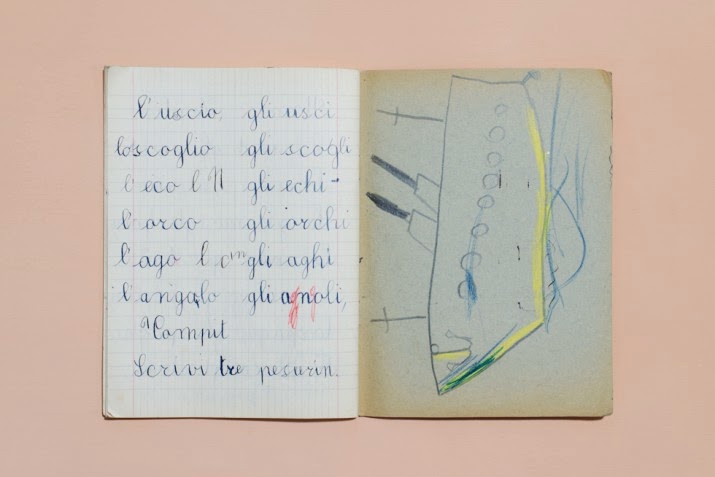 l'uscio, gli usci
lo scoglio gli scogli
l'eco l gli echi
l'orco gli orchi
l'ago l gli aghi
l'angolo gli angoli,
Compit
Scrivi tre pesurin.